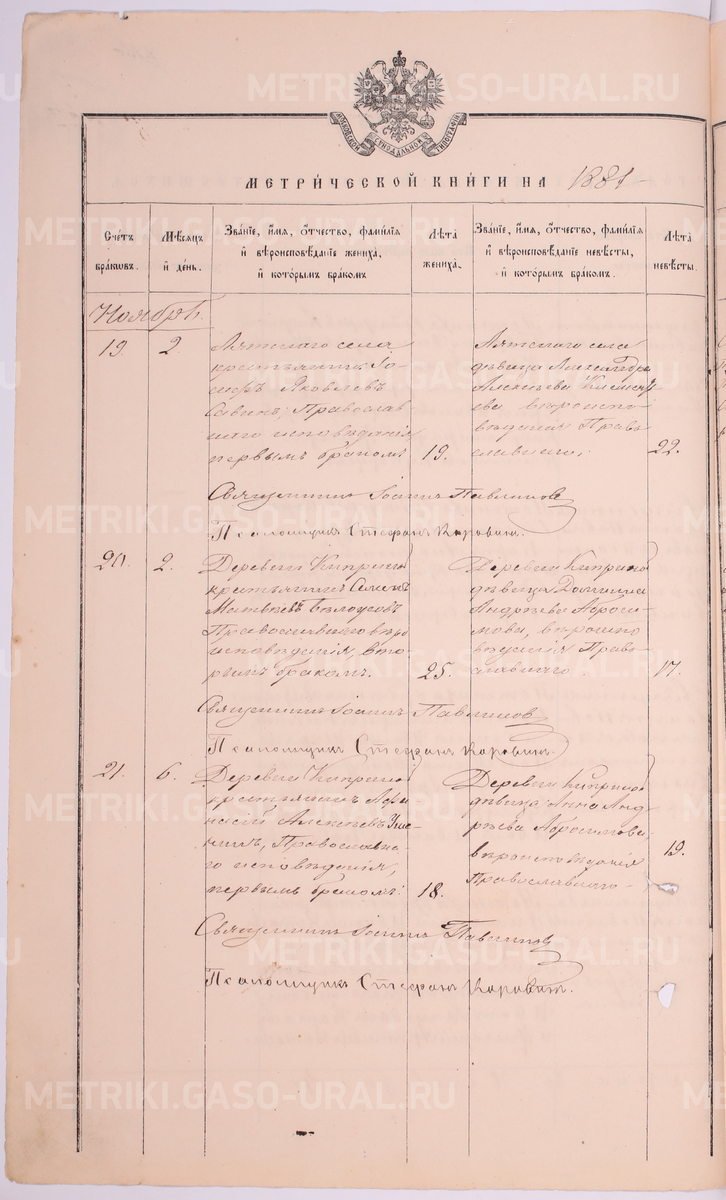 МОСКОВСКОЙ СѴНОДАЛЬНОЙ ТИПОГРАФІИ
МЕТРИ́ЧЕСКОЙ КНИ́ГИ НА 1881
Счетъ браковъ.
Мѣсяцъ и день.
Зва́ніе, и́мя, о́тчество, фами́лія и вѣроисповѣ́даніе жениха̀, и кото́рымъ бра́комъ
Лѣта̀ жениха̀.
Зва́ніе, и́мя, о́тчество, фами́лія и вѣроисповѣ́даніе невѣ́сты, и кото́рымъ бра́комъ.
Лѣта̀ невѣ́сты.
Ноябрь.
19.
2.
села
крестьянинъ
Яковлевъ
Савинъ, Православ
наго исповѣданія
первымъ бракомъ
19.
села
дѣвица Александра
Алексѣева
ева вѣроиспо
вѣданія Право
славнаго.
22.
Священникъ Іоаннъ Павлиновъ
Псаломщикъ Стефанъ Коровинъ.
20.
2.
Деревни Киприно
крестьянинъ Семенъ
Матвѣевъ Бѣлоусовъ
Православнаго вѣро
исповѣданія, вто
рымъ бракомъ.
25.
Деревни Киприно
дѣвица
Андрѣева Аброси-
мова, вѣроиспо
вѣданія Право
славнаго.
17.
Священникъ Іоаннъ Павлиновъ
Псаломщикъ Стефанъ Коровинъ.
21.
6.
Деревни Киприно
крестьянинъ Афа
насій Алексѣевъ
Православна
го исповѣданія,
первымъ бракомъ.
18.
Деревни Киприно
дѣвица Анна Анд
рѣева Абросимова,
вѣроисповѣданія
Православнаго
19.
Священникъ Іоаннъ Павлиновъ
Псаломщикъ Стефанъ Коровинъ.
METRIKI.GASO-URAL.RU